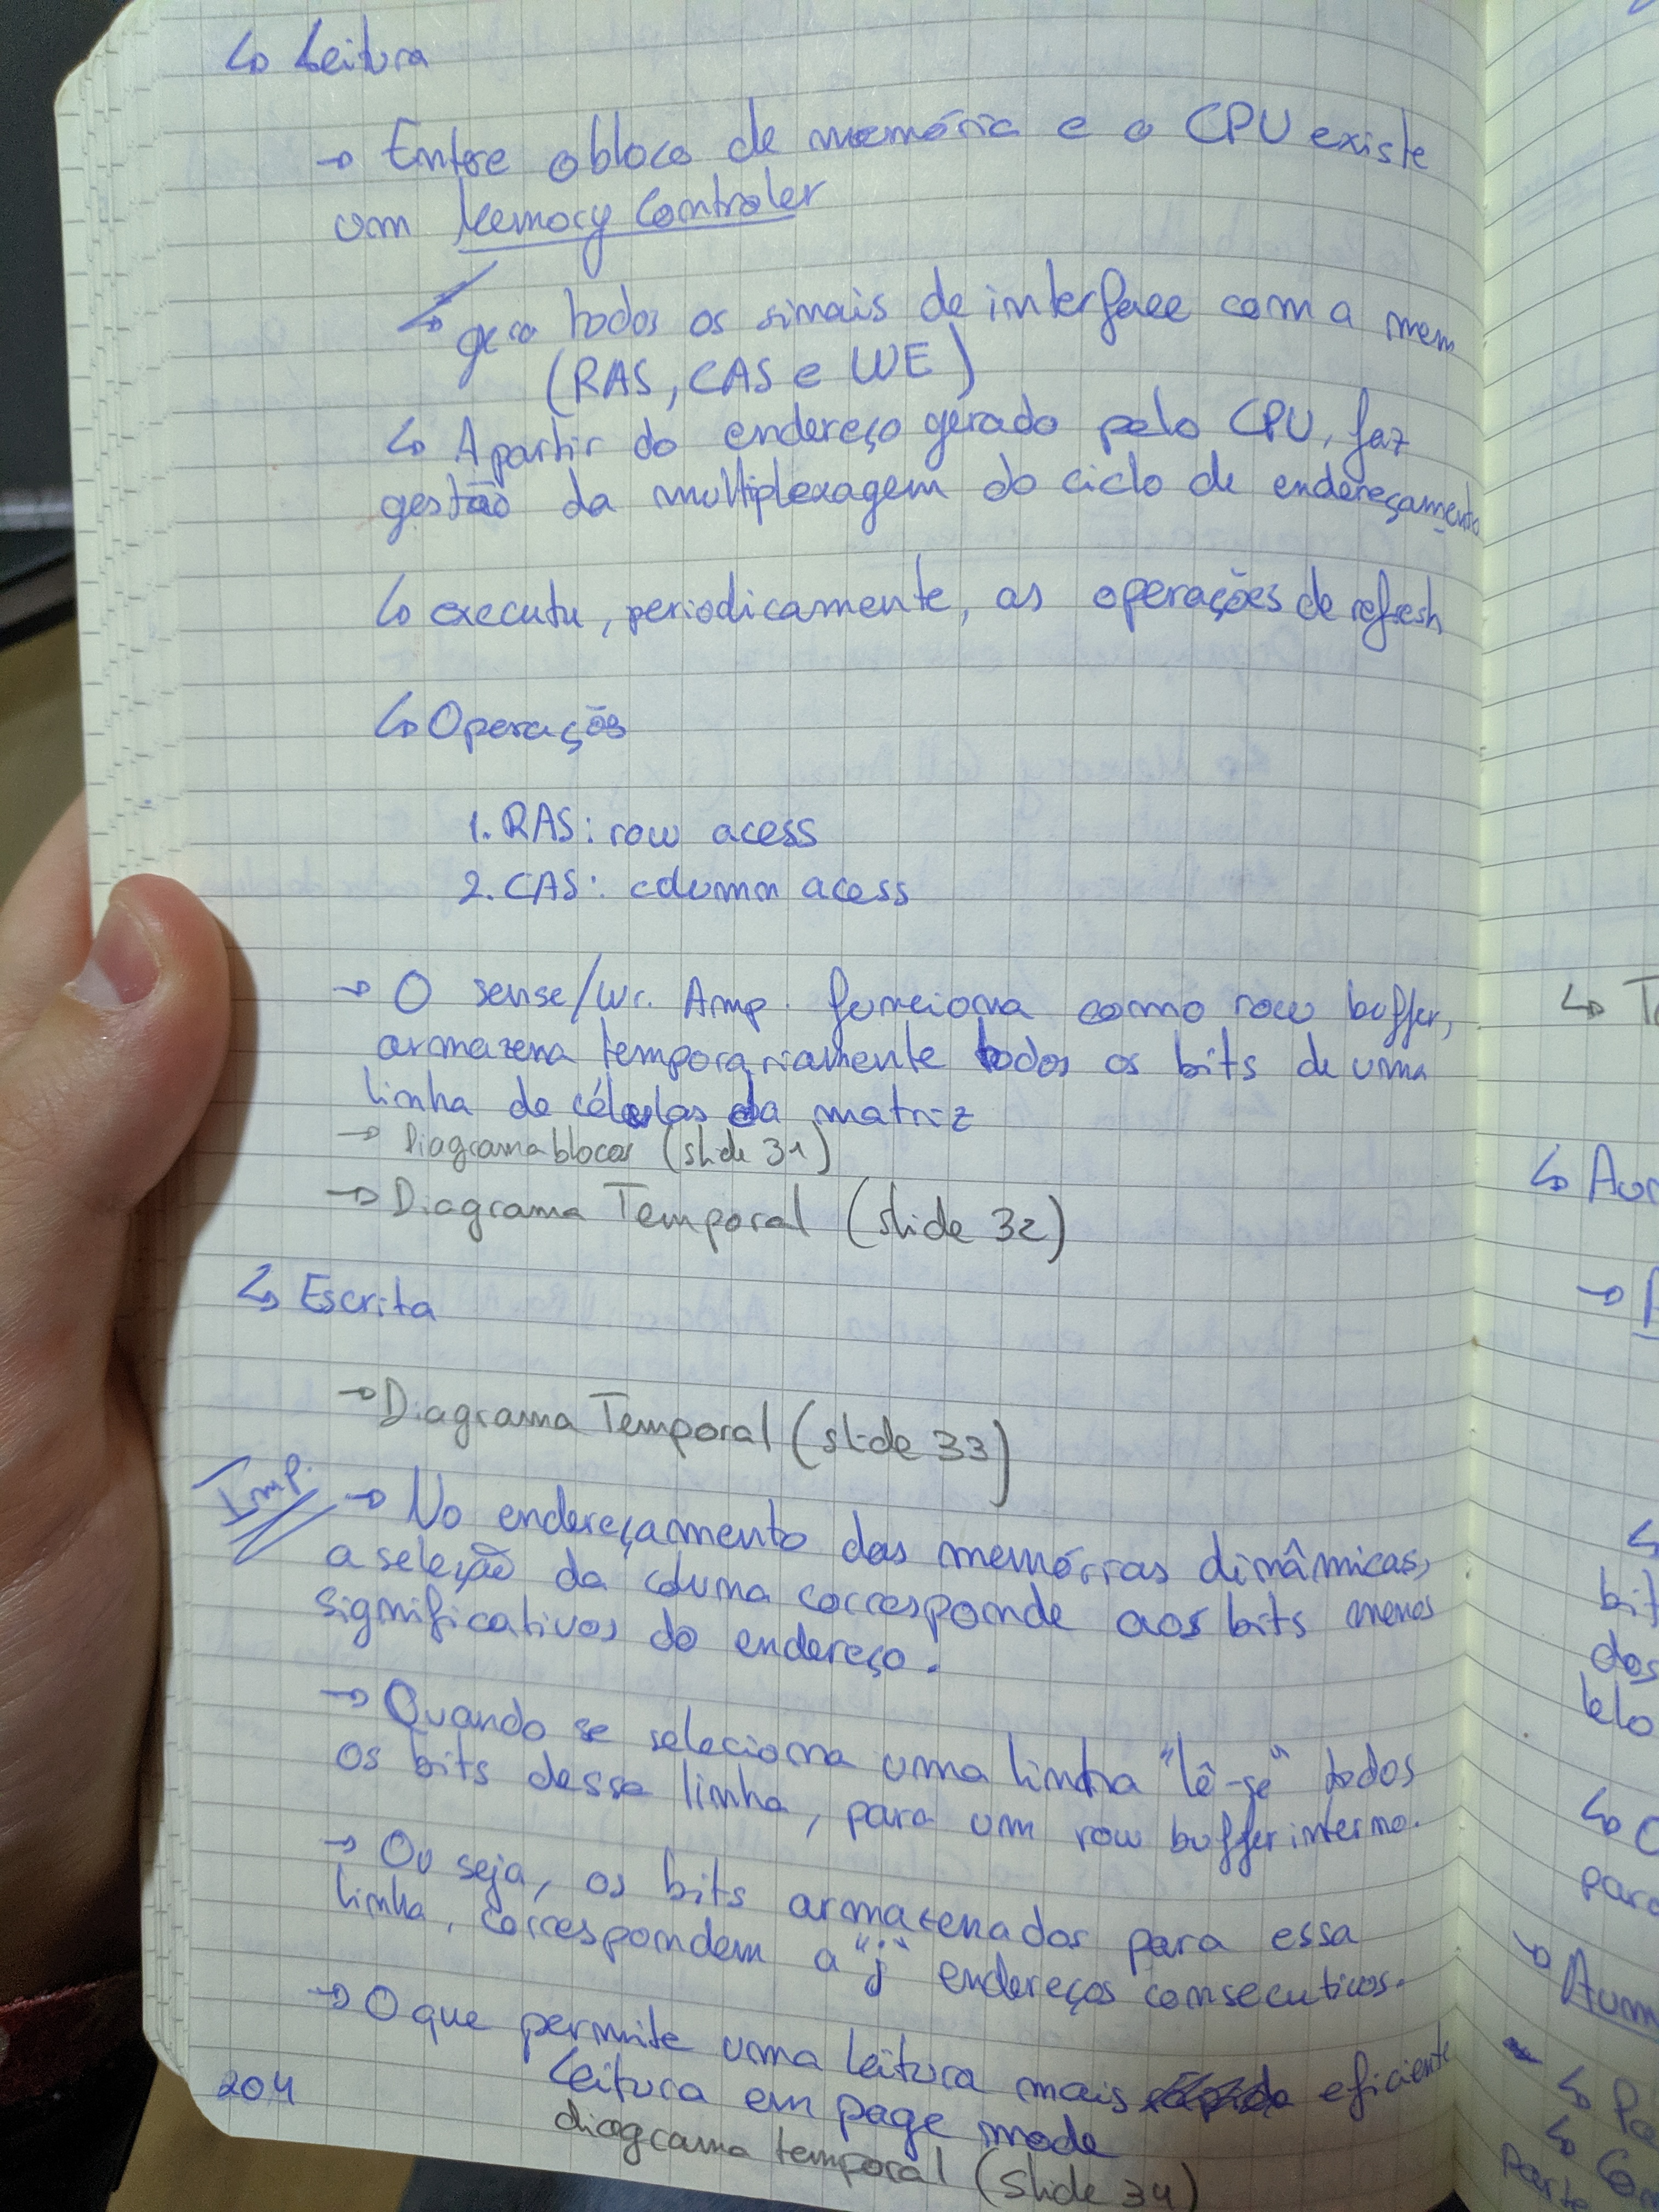 ↳ Leitura
→ Entre o bloco de memória e o CPU existe
um Memory Controler
↳ gera todos os sinais de interface com a mem
(RAS, CAS e WE)
↳ A partir do endereço gerado pelo CPU, faz
gestão da multiplexagem do ciclo de endereçamento
↳ executa, periodicamente, as operações de refresh
↳ Operações
1. RAS: row acess
2. CAS: column acess
→ O sense/Wr. Amp. funciona como row buffer,
armazena temporariamente todos os bits de uma
linha de células da matriz
→ Diagrama blocos (slide 31)
→ Diagrama Temporal (slide 32)
↳ Escrita
→ Diagrama Temporal (slide 33)
Imp.
→ No endereçamento das memórias dinâmicas,
a seleção da coluna corresponde aos bits menos
significativos do endereço.
→ Quando se seleciona uma linha "lê-se" todos
os bits dessa linha, para um row buffer interno.
→ Ou seja, os bits armazenados para essa
linha, correspondem a "j" endereços consecutivos.
→ O que permite uma leitura mais eficiente
Leitura em page mode
204
diagrama temporal (slide 34)